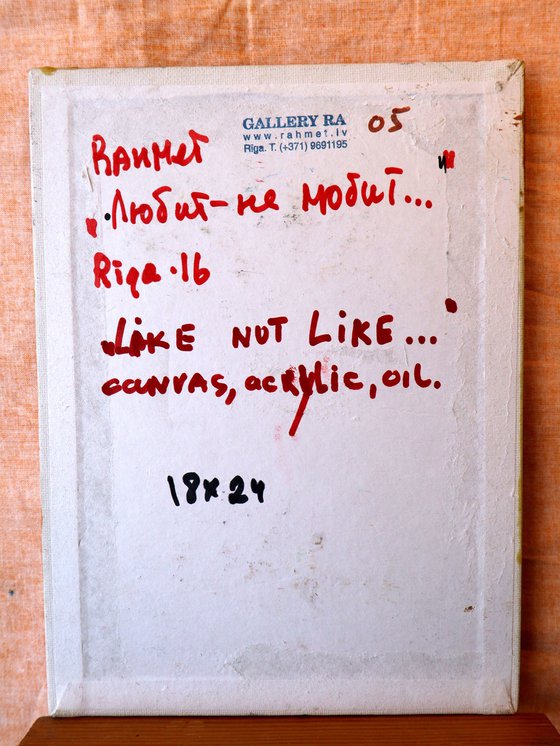 GALLERY RA 05
www.rahmet.lv
Riga. T. (+371) 9691195
RAHMET
"Любит-не любит..."
Riga.16
"LIKE NOT LIKE..."
CANVAS, ACRYLIC, OIL.
18x24